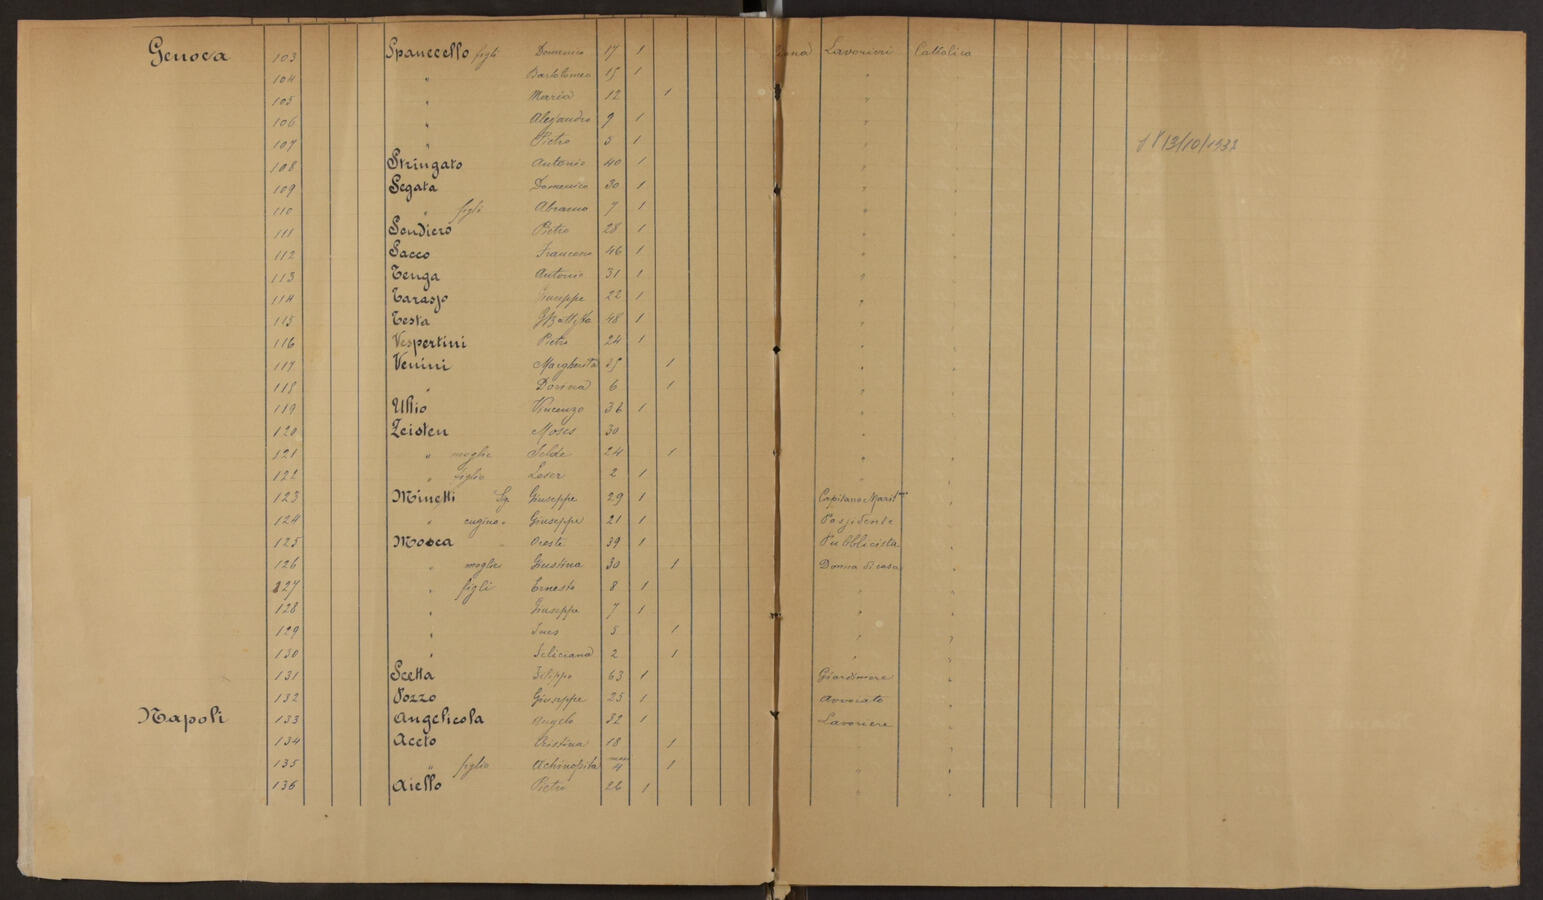 Genova 103 Spancello figli Domenico 17 1 Lavorieri Cattolica
104 " Bartolomeo 15 1 " "
105 " Maria 12 1 " "
106 " Alessandro 9 1 " "
107 " Pietro 5 1 " " 13/10/1932
108 Stringato Antonio 40 1 " "
109 Segata Domenico 30 1 " "
110 " figli Abramo 7 1 " "
111 Sondiero Pietro 28 1 " "
112 Sacco Francesco 46 1 " "
113 Tenga Antonio 31 1 " "
114 Tarasjo Giuseppe 22 1 " "
115 Testa GBattista 48 1 " "
116 Vespertini Pietro 24 1 " "
117 Venini Margherita 35 1 " "
118 " Dorina 6 1 " "
119 Ullio Vincenzo 36 1 " "
120 Zeisten Moses 30 " "
121 " moglie 24 1 " "
122 " figlio Leser 2 1 " "
123 Minetti Sig. Giuseppe 29 1 Capitano Maritmo "
124 " cugino " Giuseppe 21 1 Possidente "
125 Mosca Oreste 39 1 Pubblicista "
126 " moglie Giustina 30 1 Donna di casa "
127 " figli Ernesto 8 1 " "
128 " Giuseppe 7 1 " "
129 " Ines 5 1 " "
130 " Feliciana 2 1 " "
131 Scetta Filippo 63 1 Giardiniere "
132 Pozzo Giuseppe 25 1 Avvocato "
Napoli 133 Angelicola Angelo 32 1 Lavoriere "
134 Aceto Cristina 18 1 " "
135 " figlio Achiropita mesi 4 1 " "
136 Aiello Pietro 26 1 " "